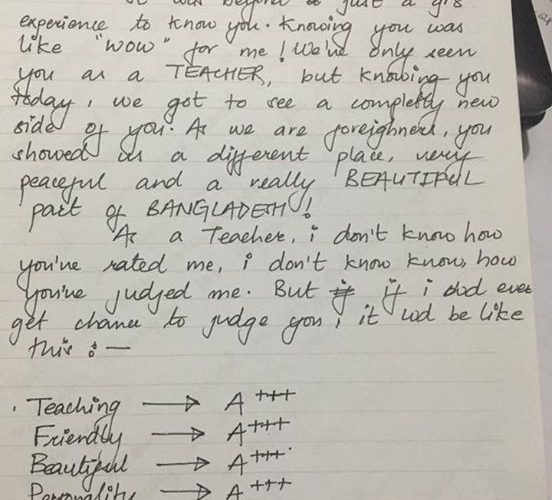 just a
experience to know you. Knowing you was
like "wow" for me! We've only seen
you as a TEACHER, but knowing you
today, we got to see a completly new
side of you. As we are foreighners, you
showed us a different place, very
peaceful and a really BEAUTIFUL
part of BANGLADESH!
As a Teacher, i don't know how
you've rated me, i don't know know how
you've judged me. But if if i did ever
get chance to judge you, it wd be like
this :—
. Teaching → A+++
Friendly → A+++
Beautiful → A+++
Personality → A+++